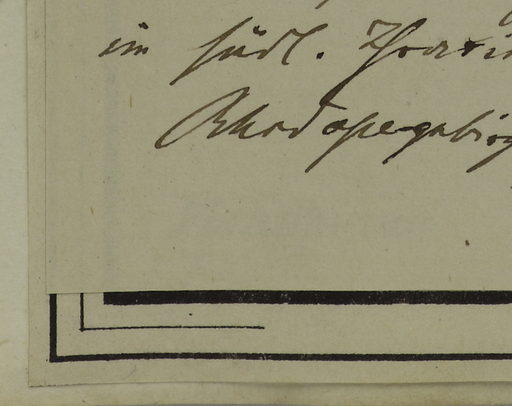 im südl. Thracien
Rhodopegebirg